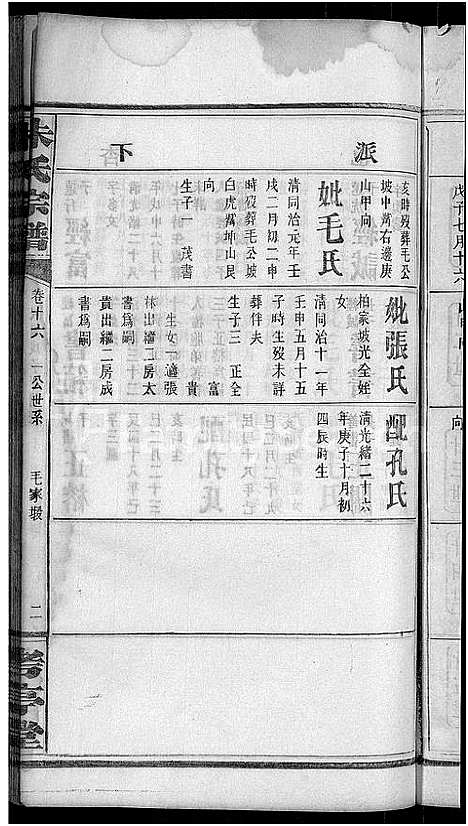 派
下
亥時歿葬毛公
坡中嵩右邊庚
山甲向
妣毛氏
清同治元年壬
戌二月初二申
時歿葬毛公坡
白虎嵩坤山艮
向
生子一 茂書
妣張氏
柏家坡光全姪
女
清同治十一年
壬申五月十五
子時生歿未詳
葬伴夫
生子三 正全
富
貴
生女一適張
林出繼二房太
貴出繼二房成
書爲嗣
配孔氏
清光緒二十六
年庚子十月初
四辰時生
朱氏宗譜
卷十六 一公世系
毛家塅
二
戊子七月十六
向